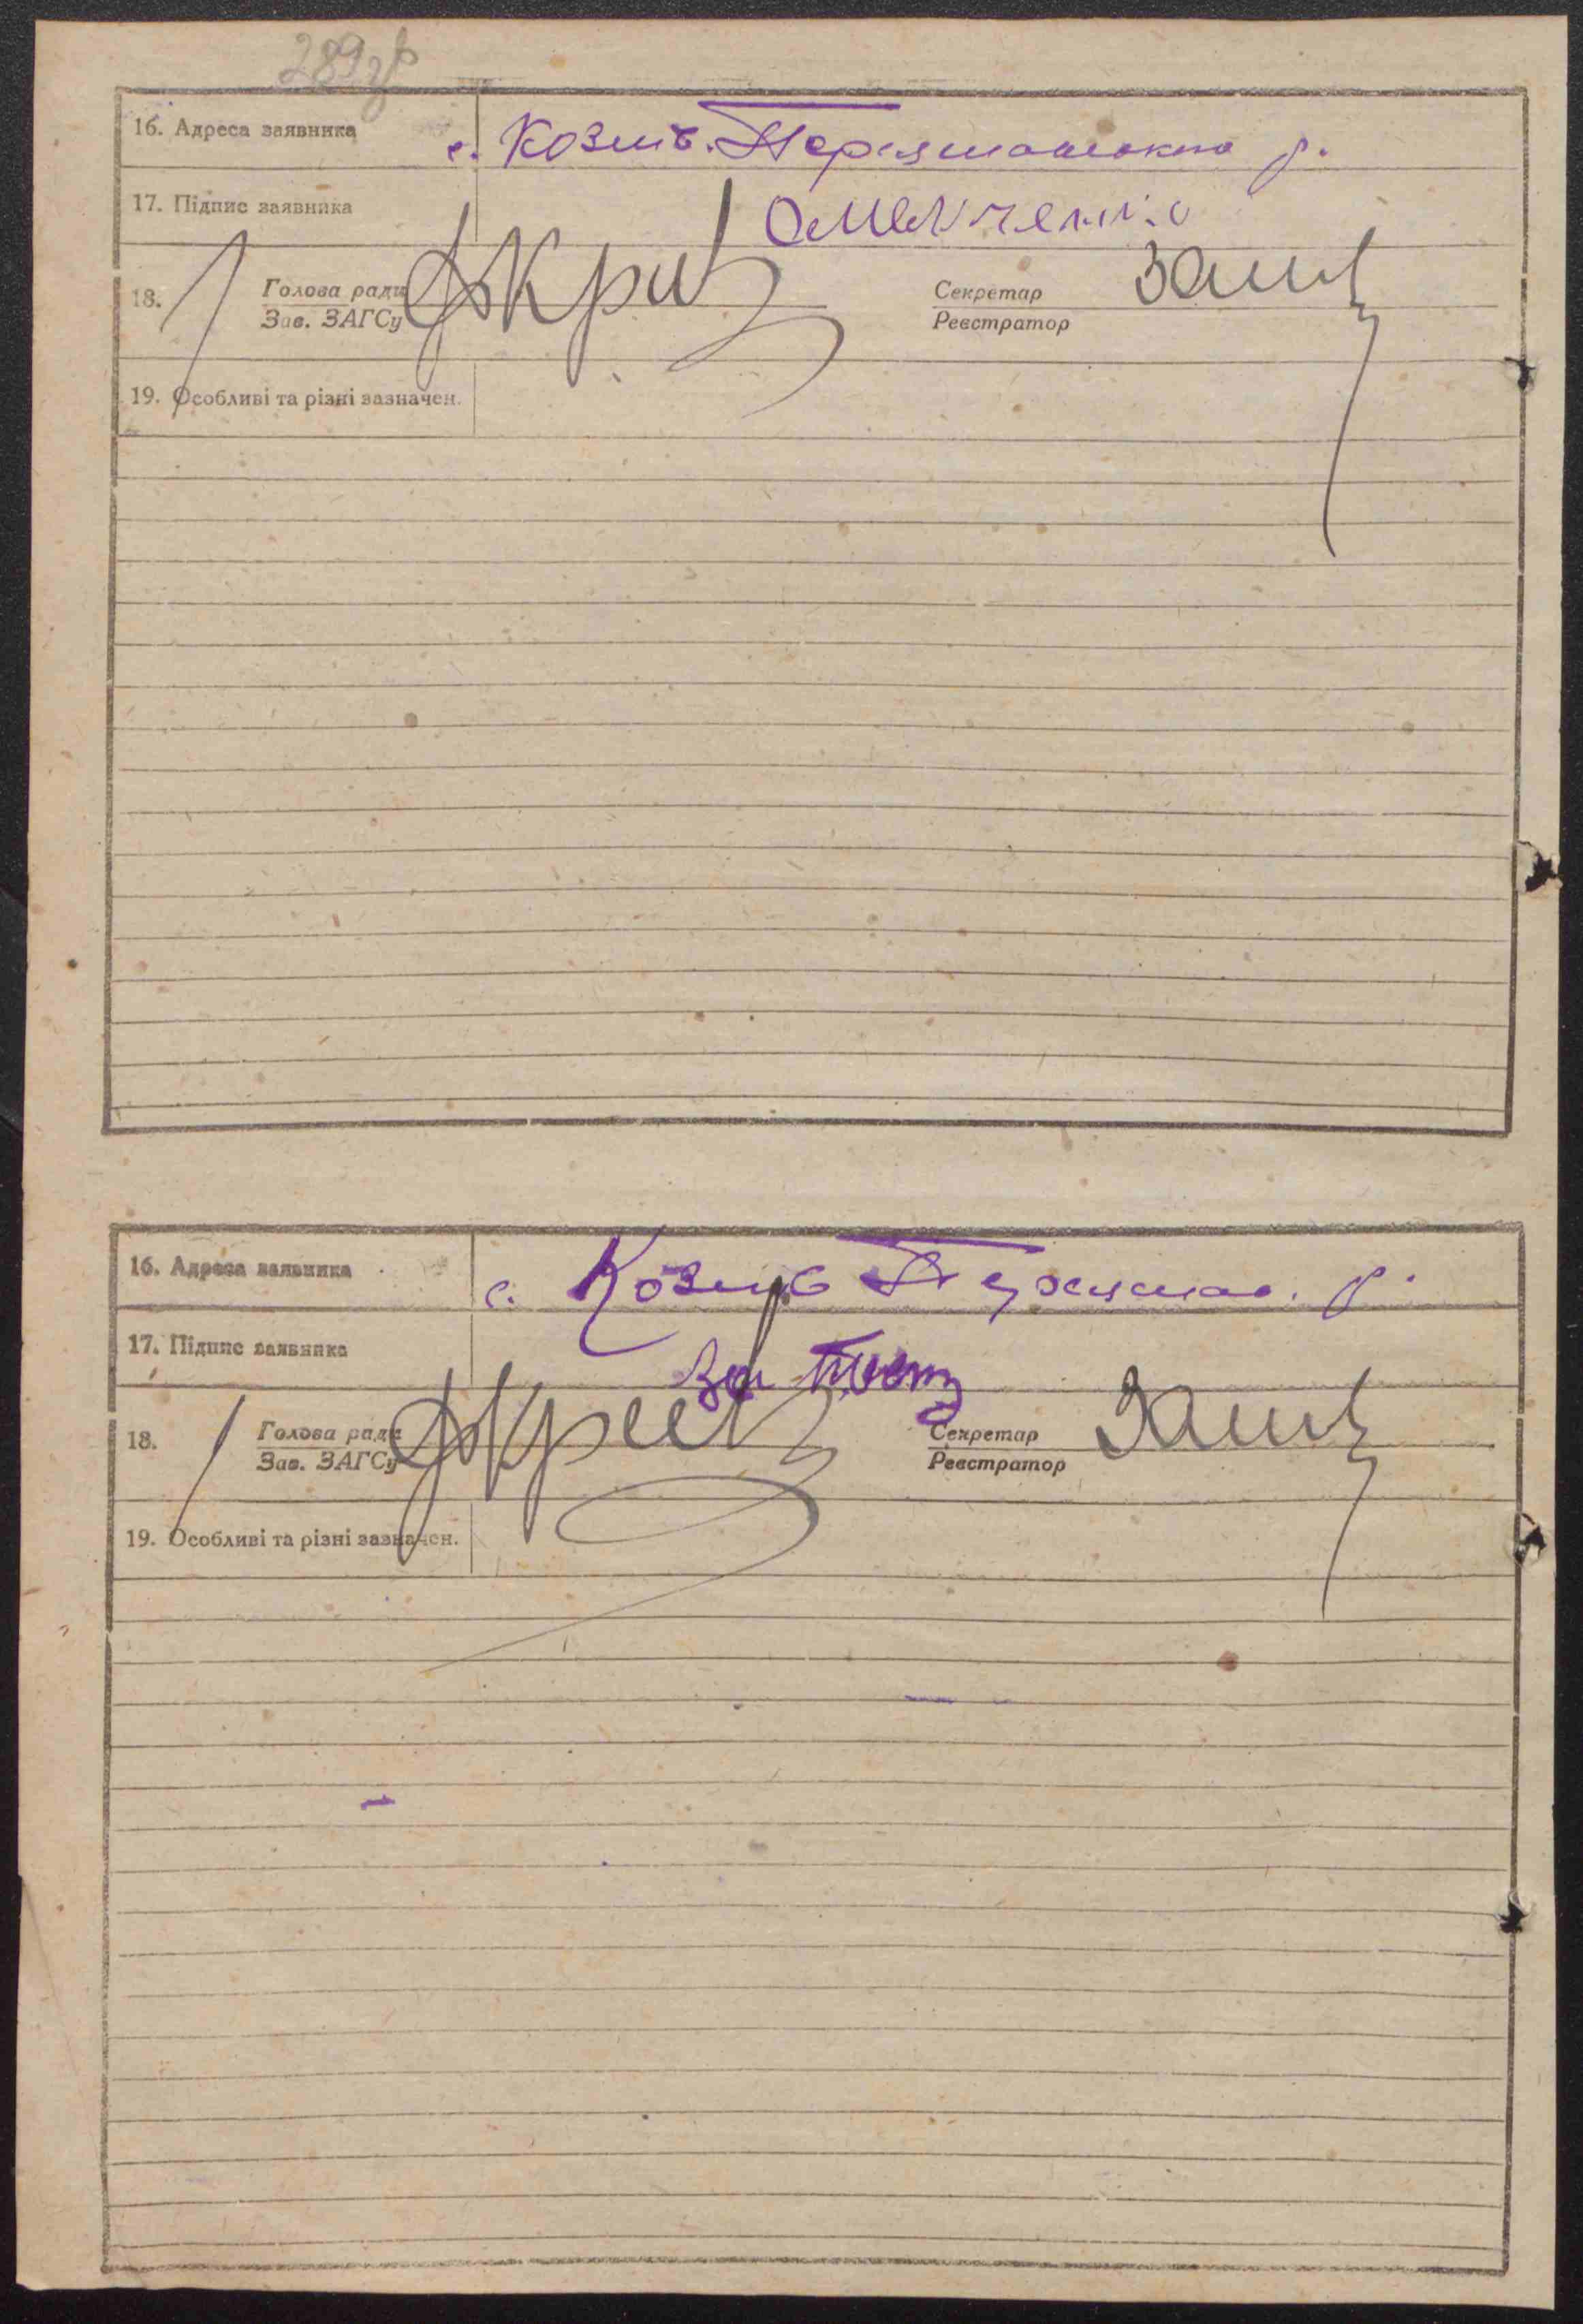 289зв
16. Адреса заявника с. Козин. Переяславського р.
17. Підпис заявника Омельченко
18. Голова ради Секретар
Зав. ЗАГСу Реєстратор
19. Особливі та різні зазначен.
16. Адреса заявника с. Козин Переяслав. р.
17. Підпис заявника
18. Голова ради Секретар
Зав. ЗАГСу Реєстратор
19. Особливі та різні зазначен.